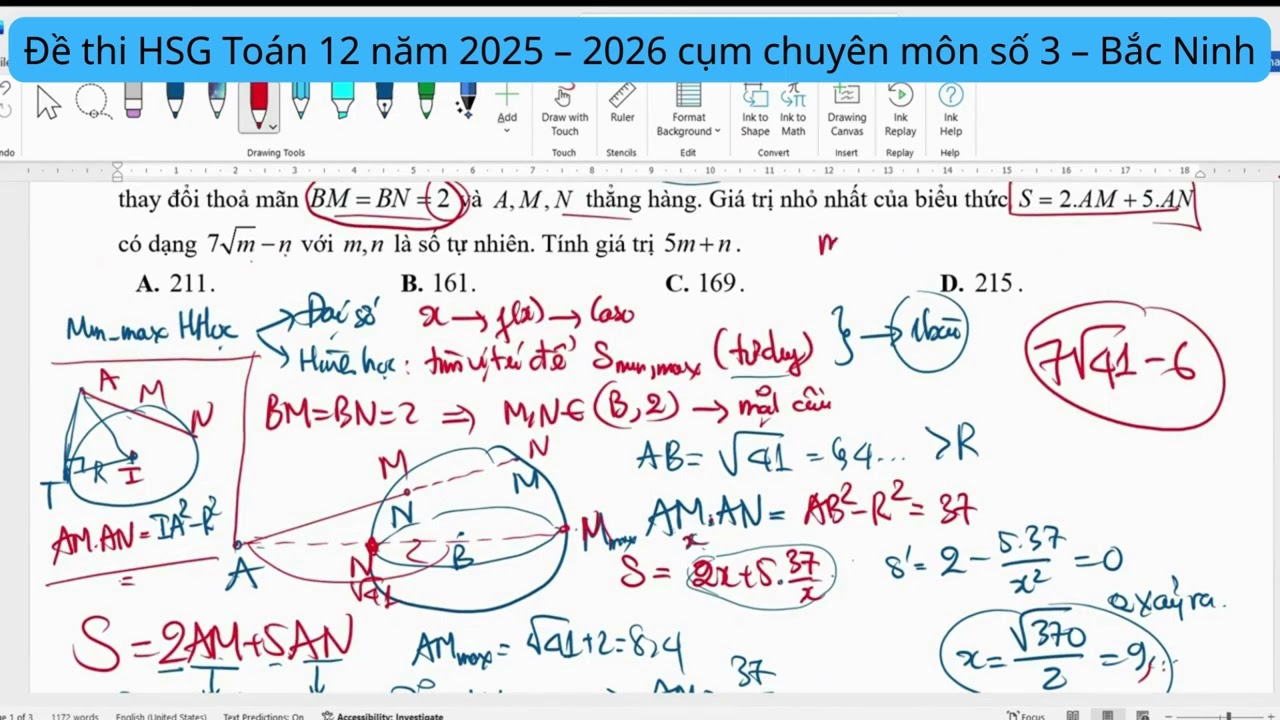 Đề thi HSG Toán 12 năm 2025 – 2026 cụm chuyên môn số 3 – Bắc Ninh
Add
Draw with Touch
Ruler
Format Background
Ink to Shape
Ink to Math
Drawing Canvas
Ink Replay
Ink Help
Drawing Tools
Touch
Stencils
Edit
Convert
Insert
Replay
Help
1 2 3 4 5 6 7 8 9 10 11 12 13 14 15 16 17 18
thay đổi thoả mãn BM = BN = 2 và A, M, N thẳng hàng. Giá trị nhỏ nhất của biểu thức S = 2.AM + 5.AN
có dạng 7√m − n với m, n là số tự nhiên. Tính giá trị 5m + n.
A. 211. B. 161. C. 169. D. 215.
Min_max HHọc
Đại số x → f(x) → Caso
Hình học: tìm vị trí để S min, max (tư duy)
7√41 − 6
BM=BN=2 ⇒ M,N ∈ (B,2) → mặt cầu
A M N
T R I
AM.AN = IA² − R²
AB = √41 = 6,4... > R
AM.AN = AB² − R² = 37
x
S = 2x + 5.37/x
S' = 2 − 5.37/x² = 0
xảy ra.
x = √370/2 = 9,...
M N
N M
A N 2 B M max
√41
S = 2AM + 5AN
AM max = √41 + 2 = 8,4
37
AM
1172 words
English (United States)
Text Predictions: On
Accessibility: Investigate
Focus